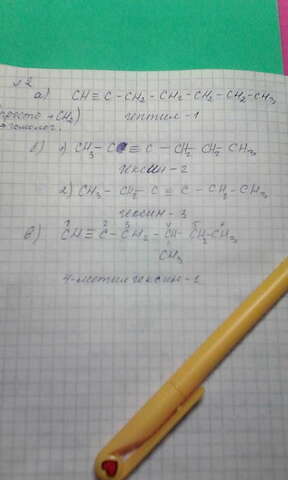 №2
а) CH≡C-CH₂-CH₂-CH₂-CH₂-CH₃
(просто +CH₂) гептин-1
→гомолог.
б) 1) CH₃-C≡C-CH₂-CH₂-CH₃
гексин-2
2) CH₃-CH₂-C≡C-CH₂-CH₃
гексин-3
1 2 3 4 5 6
в) CH≡C-CH₂-CH-CH₂-CH₃
CH₃
4-метилгексин-1